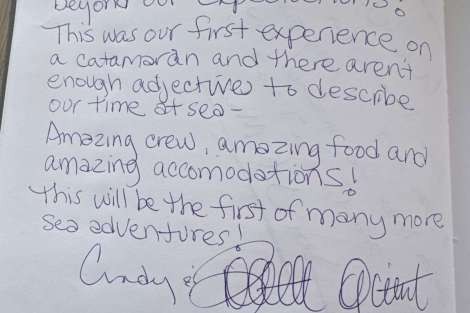 Beyond our expectations!
This was our first experience on
a catamaran and there aren't
enough adjectives to describe
our time at sea -
Amazing crew, amazing food and
amazing accomodations!
This will be the first of many more
sea adventures!
Cindy &